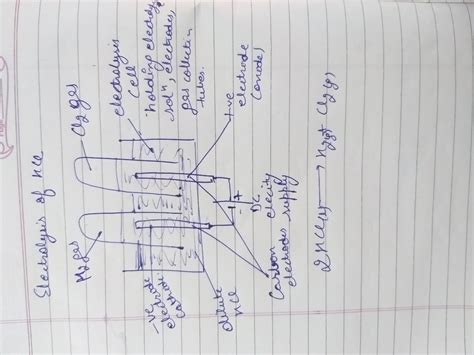 Electrolysis of HCl
H2 gas
Cl2 gas
electrolysis
Cell
holding electroly
soln, electrodes,
gas collection
tubes.
-ve
electrode
+ve
electrode
(anode)
dilute
HCl
DC
supply
Carbon
electrodes
2HCl(aq) → H2(g) + Cl2(g)